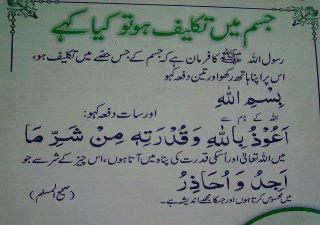 جسم میں تکلیف ہو تو کیا کہے
رسول اللہ ﷺ کا فرمان ہے کہ جسم کے جس حصّے میں تکلیف ہو،
اس پر اپنا ہاتھ رکھو اور تین دفعہ کہو
بِسْمِ اللّٰهِ
اللہ کے نام سے اور سات دفعہ کہو:
اَعُوْذُ بِاللّٰهِ وَقُدْرَتِهٖ مِنْ شَرِّ مَا
میں اللہ تعالیٰ اور اُسکی قدرت کی پناہ میں آتا ہوں، اس چیز کے شر سے جو
اَجِدُ وَ اُحَاذِرُ
میں محسوس کرتا ہوں اور جسکا مجھے اندیشہ ہے۔ (صحیح المسلم)